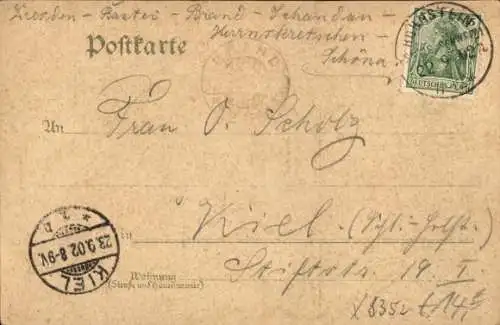 Dresden - Bastei - Brand - Schandau -
Herrnskretschen -
Schöna
Postkarte
DEUTSCHES REICH
An Frau O. Scholz
in Kiel (Schl.-Holst.)
Stiftstr. 19. I
Wohnung
(Straße und Hausnummer)
KIEL
23.9.02.8-9V.
X 8352